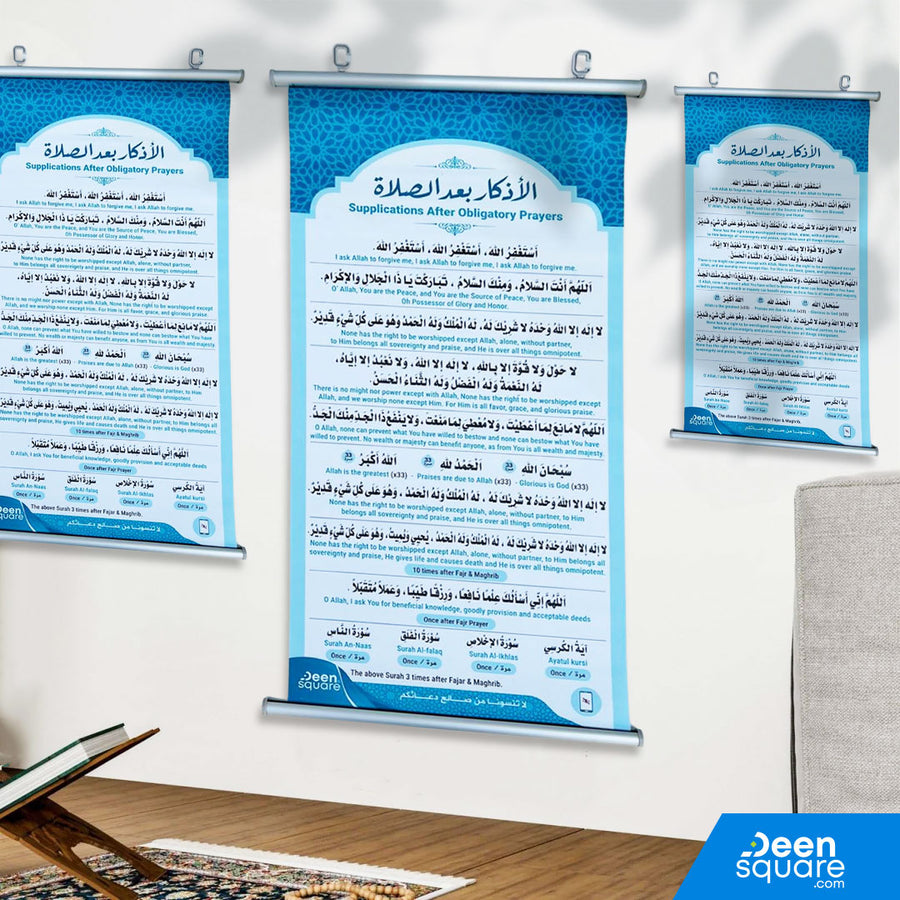 الأذكار بعد الصلاة
Supplications After Obligatory Prayers
أَسْتَغْفِرُ اللهَ، أَسْتَغْفِرُ اللهَ، أَسْتَغْفِرُ اللهَ
I ask Allah to forgive me, I ask Allah to forgive me, I ask Allah to forgive me.
اللهُمَّ أَنْتَ السَّلامُ، وَمِنْكَ السَّلامُ، تَبَارَكْتَ يَا ذَا الْجَلالِ وَالإِكْرَامِ
O' Allah, You are the Peace, and You are the Source of Peace, You are Blessed,
Oh Possessor of Glory and Honor.
لا إلهَ إلا اللهُ وَحْدَهُ لا شَرِيكَ لَهُ، لَهُ الْمُلْكُ وَلَهُ الْحَمْدُ وَهُوَ عَلَى كُلِّ شَيْءٍ قَدِيْرٌ
None has the right to be worshipped except Allah, alone, without partner,
to Him belongs all sovereignty and praise, and He is over all things omnipotent.
لا حَوْلَ وَلا قُوَّةَ إلا بِاللهِ، لا إلهَ إلا اللهُ، وَلا نَعْبُدُ إلا إيَّاهُ،
لَهُ النِّعْمَةُ وَلَهُ الْفَضْلُ وَلَهُ الثَّنَاءُ الْحَسَنُ
There is no might nor power except with Allah, None has the right to be worshipped except
Allah, and we worship none except Him. For Him is all favor, grace, and glorious praise.
اللَّهُمَّ لا مَانِعَ لِمَا أَعْطَيْتَ، وَلا مُعْطِيَ لِمَا مَنَعْتَ، وَلا يَنْفَعُ ذَا الْجَدِّ مِنْكَ الْجَدُّ
O Allah, none can prevent what You have willed to bestow and none can bestow what You have
willed to prevent. No wealth or majesty can benefit anyone, as from You is all wealth and majesty.
سُبْحَانَ اللهِ 33 الْحَمْدُ للهِ 33 اللهُ أَكْبَرُ 33
Allah is the greatest (x33) - Praises are due to Allah (x33) - Glorious is God (x33)
لا إله إلا اللهُ وَحْدَهُ لا شَرِيكَ لَهُ، لَهُ الْمُلْكُ وَلَهُ الْحَمْدُ، وَهُوَ عَلَى كُلِّ شَيْءٍ قَدِيْرٌ
None has the right to be worshipped except Allah, alone, without partner, to Him
belongs all sovereignty and praise, and He is over all things omnipotent.
لا إلَه إلا اللهُ وَحْدَهُ لا شَرِيكَ لَهُ، لَهُ الْمُلْكُ وَلَهُ الْحَمْدُ، يُحْيِي وَيُمِيتُ، وَهُوَ عَلَى كُلِّ شَيْءٍ قَدِيْرٌ
None has the right to be worshipped except Allah, alone, without partner, to Him belongs all
sovereignty and praise, He gives life and causes death and He is over all things omnipotent.
10 times after Fajr & Maghrib
اللهُمَّ إنِّي أَسْأَلُكَ عِلْمًا نَافِعًا، وَرِزْقًا طَيِّبًا، وَعَمَلاً مُتَقَبَّلاً
O Allah, I ask You for beneficial knowledge, goodly provision and acceptable deeds
Once after Fajr Prayer
آيَةُ الكُرسِي سُوْرَةُ الْإِخْلَاصِ سُوْرَةُ الْفَلَقِ سُوْرَةُ النَّاسِ
Surah An-Naas Surah Al-falaq Surah Al-Ikhlas Ayatul kursi
Once / مرة Once / مرة Once / مرة Once / مرة
The above Surah 3 times after Fajar & Maghrib.
Deen
square
لا تنسونا من صالح دعائكم
Deen
square
.com